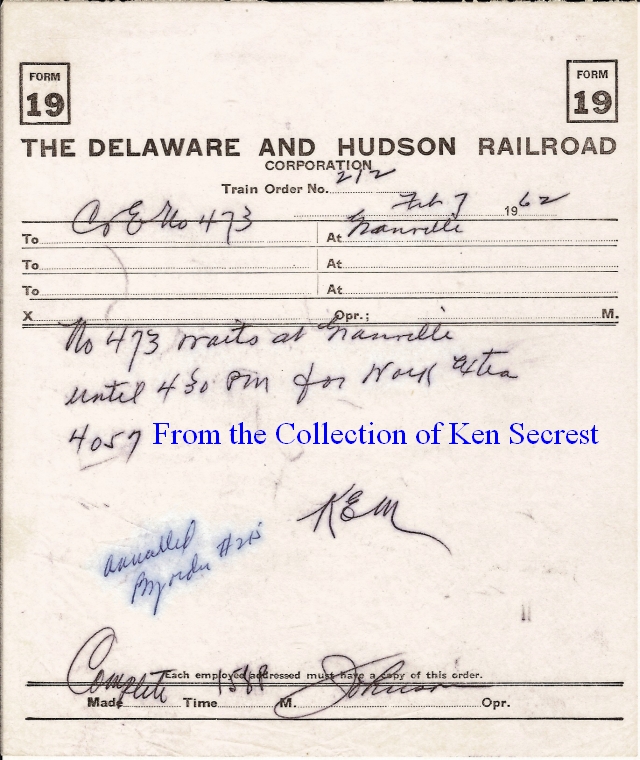 FORM 19
FORM 19
THE DELAWARE AND HUDSON RAILROAD
CORPORATION
Train Order No. 212
Feb 7 1962
To C&E No 473 At Granville
To At
To At
X Opr.; M.
No 473 waits at Granville
until 430 PM for Work Extra
4057
From the Collection of Ken Secrest
KEM
annulled
By order
Each employe addressed must have a copy of this order.
Made Complete Time M. Johnson Opr.